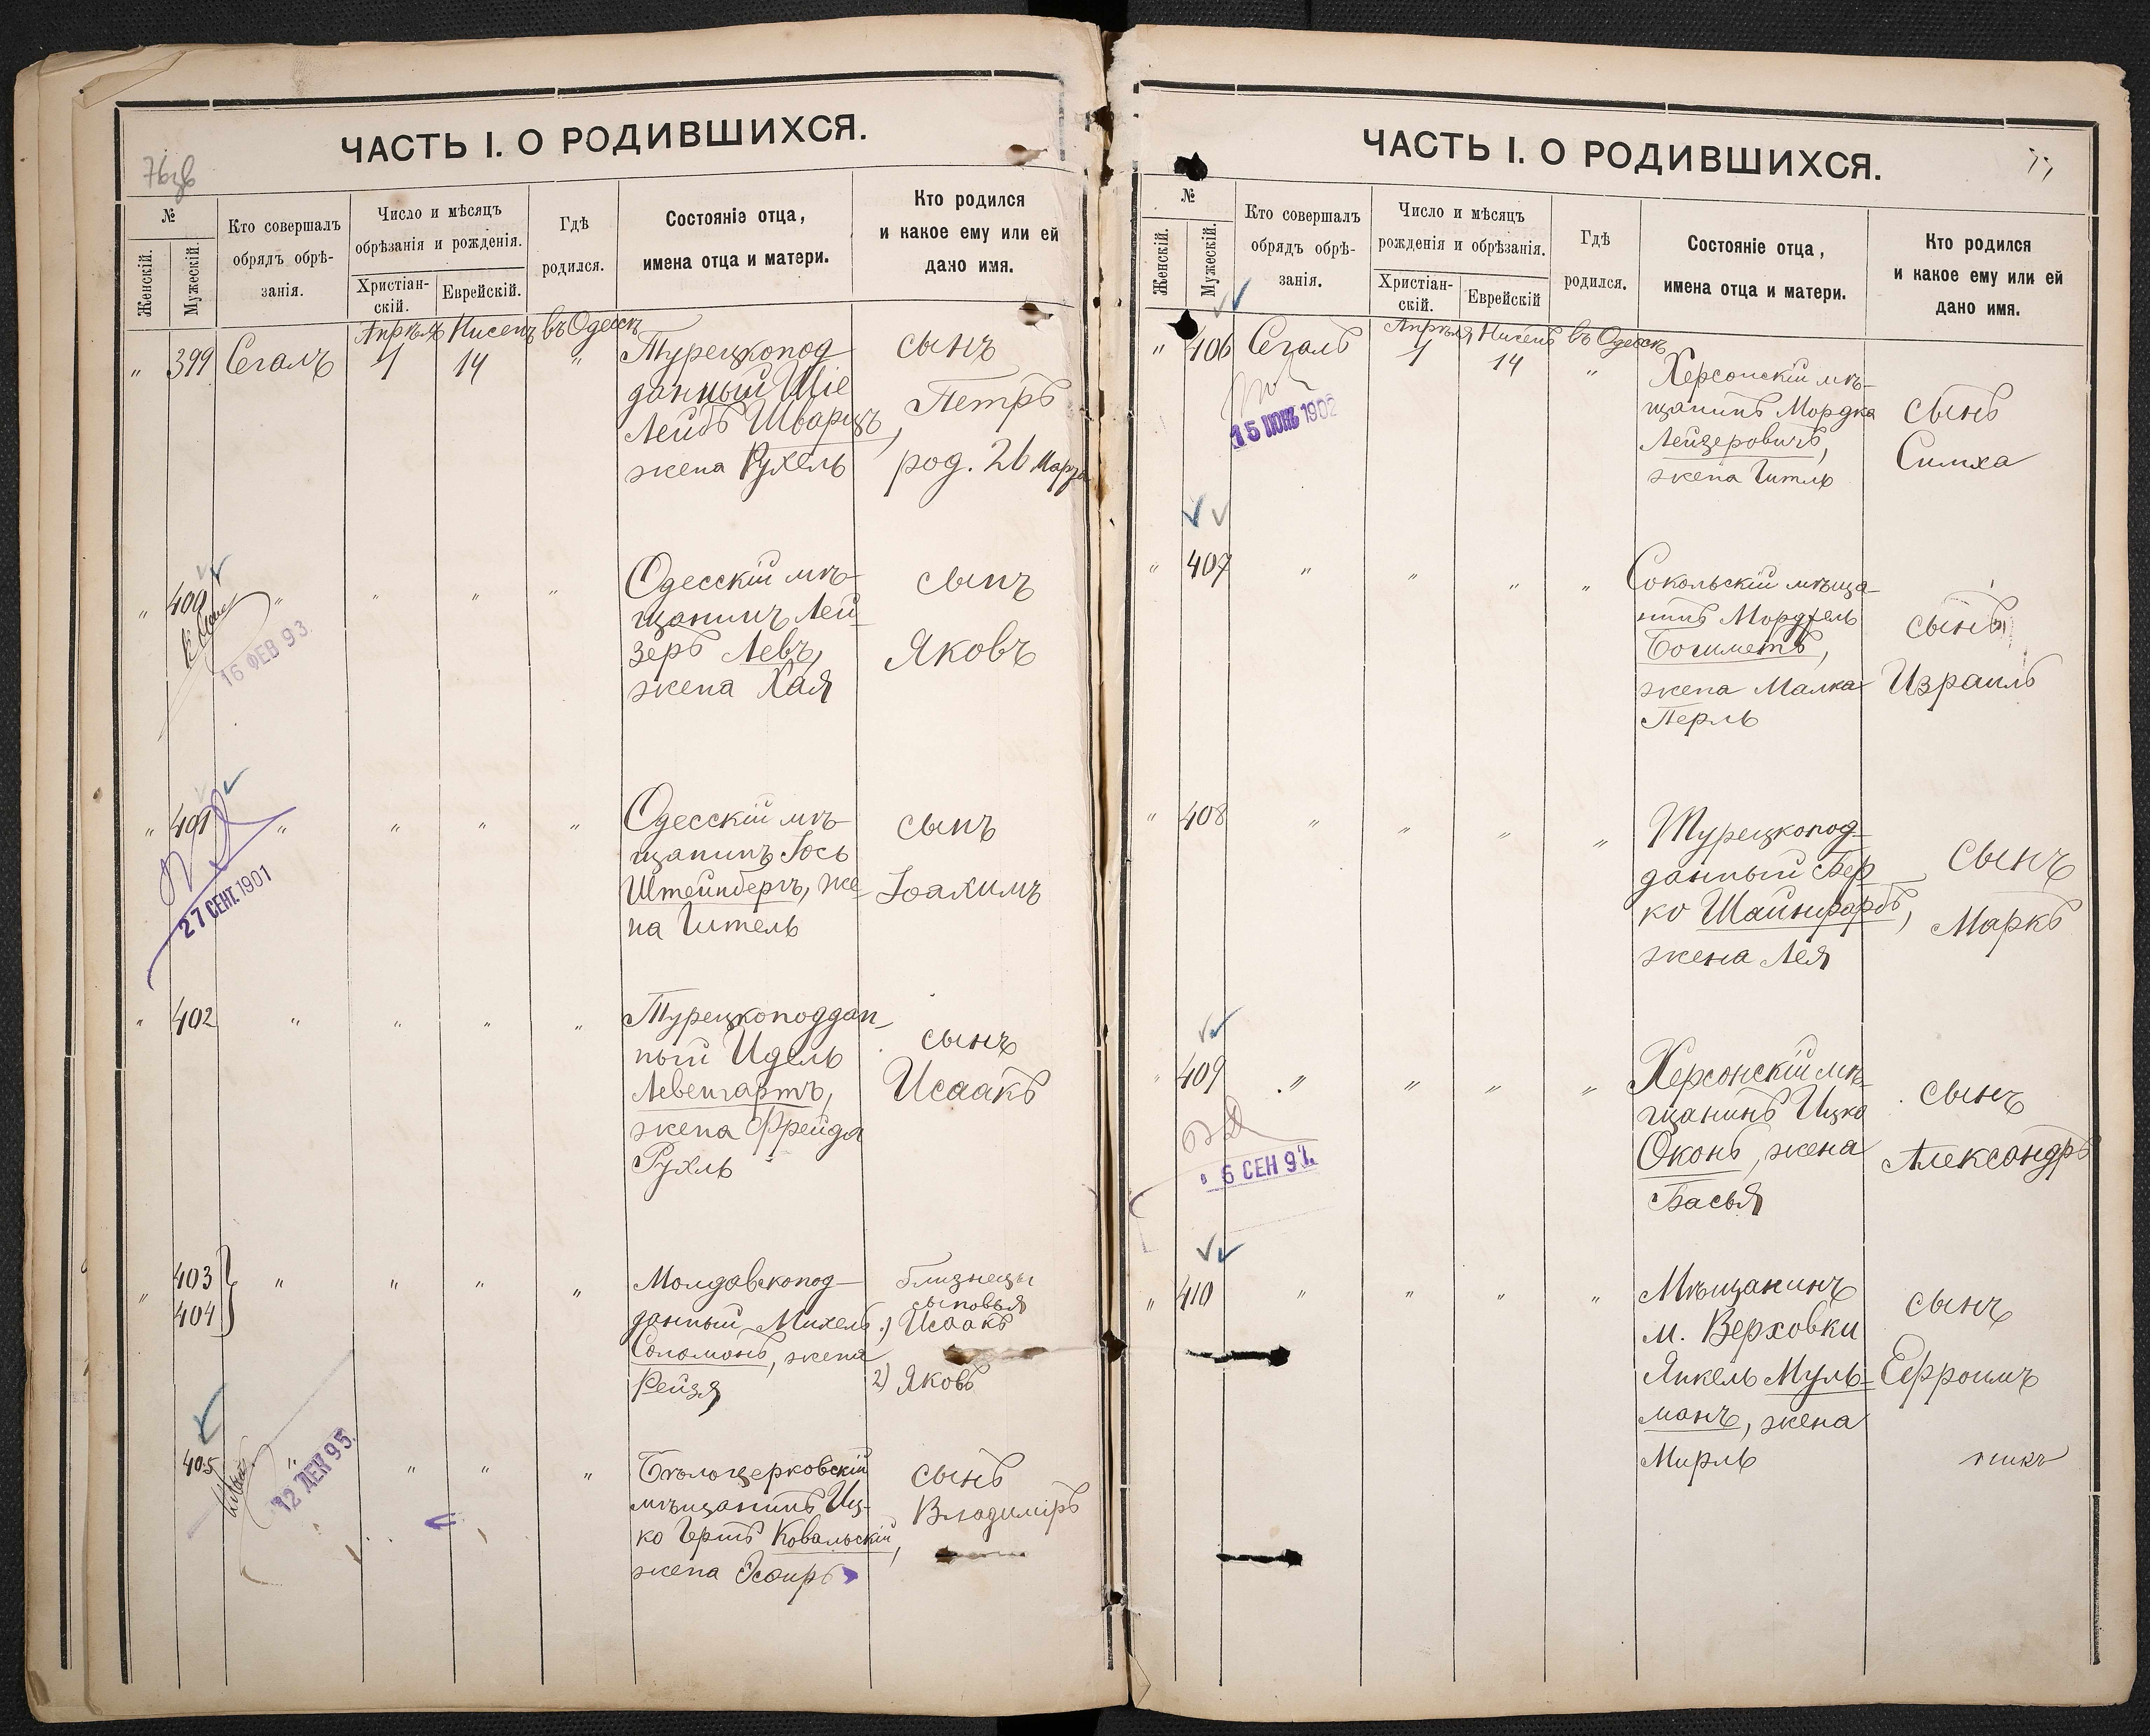 ЧАСТЬ I. О РОДИВШИХСЯ.
№
Женскій.
Мужескій.
Кто совершалъ
обрядъ обрѣ-
занія.
Число и мѣсяцъ
обрѣзанія и рожденія.
Христіан-
скій.
Еврейскій.
Гдѣ
родился.
Состояніе отца,
имена отца и матери.
Кто родился
и какое ему или ей
дано имя.
Апрѣля Нисенъ въ Одессѣ
" 399 Сегалъ 1 14 "
Турецкопод
данный Шіе
Лейбъ Шварцъ,
жена Рухель
сынъ
Петръ
род. 26 Марта
" 400 " " " "
16 ФЕВ 93.
Одесскій мѣ-
щанинъ Лей
зеръ Левъ,
жена Хая
сынъ
Яковъ
" 401 " " " "
27 СЕНТ. 1901
Одесскій мѣ-
щанинъ Іось
Штейнбергъ, же
на Гитель
сынъ
Іоахимъ
" 402 " " " "
Турецкоподдан-
ный Идель
Левенгартъ,
жена Фрейда
Рухль
сынъ
Исаакъ
" 403 " " " "
404
Молдавскопод-
данный Михель
Соломонъ, жена
Рейзя
близнецы
сыновья
1) Исаакъ
2) Яковъ
405 " " " "
12 ДЕК 95.
Бѣлоцерковскій
мѣщанинъ Иц-
ко Гершъ Ковальскій,
жена Эсфирь
сынъ
Владиміръ
ЧАСТЬ I. О РОДИВШИХСЯ.
77
№
Женскій.
Мужескій.
Кто совершалъ
обрядъ обрѣ-
занія.
Число и мѣсяцъ
рожденія и обрѣзанія.
Христіан-
скій.
Еврейскій
Гдѣ
родился.
Состояніе отца,
имена отца и матери.
Кто родился
и какое ему или ей
дано имя.
Апрѣля Нисенъ въ Одессѣ
" 406 Сегалъ 1 14 "
15 ИЮНЬ 1902
Херсонскій мѣ-
щанинъ Мордка
Лейзеровичъ,
жена Гитль
сынъ
Симха
" 407 " " " "
Сокольскій мѣща-
нинъ
жена Малка
Перль
сынъ
Израиль
" 408 " " " "
Турецкопод-
данный Бер
ко Шайнфарбъ,
жена Лея
сынъ
Маркъ
" 409 " " " "
6 СЕН 97.
Херсонскій мѣ-
щанинъ Ицко
Оконь, жена
Басья
сынъ
Александръ
" 410 " " " "
Мѣщанинъ
м. Верховки
Янкель Муль-
манъ, жена
Мирль
сынъ
Ефроимъ